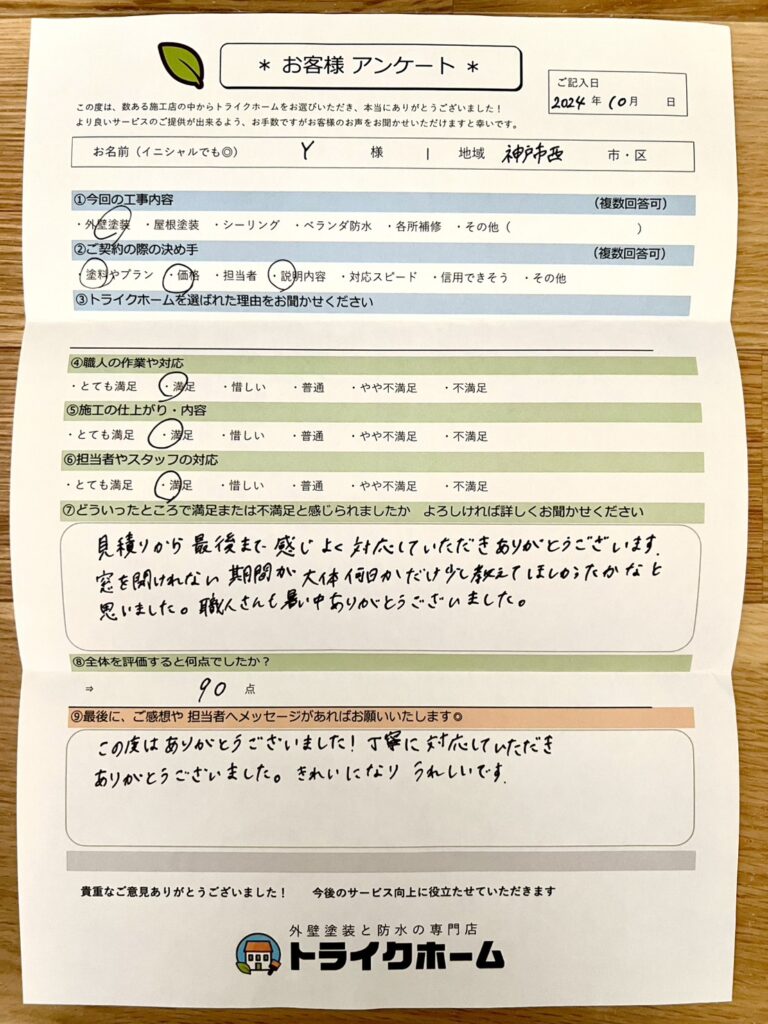 * お客様 アンケート *
ご記入日
2024 年 10 月 日
この度は、数ある施工店の中からトライクホームをお選びいただき、本当にありがとうございました！
より良いサービスのご提供が出来るよう、お手数ですがお客様のお声をお聞かせいただけますと幸いです。
お名前（イニシャルでも◎） Y 様 | 地域 神戸市西 市・区
①今回の工事内容 （複数回答可）
・外壁塗装 ・屋根塗装 ・シーリング ・ベランダ防水 ・各所補修 ・その他（ ）
②ご契約の際の決め手 （複数回答可）
・塗料やプラン ・価格 ・担当者 ・説明内容 ・対応スピード ・信用できそう ・その他
③トライクホームを選ばれた理由をお聞かせください
④職人の作業や対応
・とても満足 ・満足 ・惜しい ・普通 ・やや不満足 ・不満足
⑤施工の仕上がり・内容
・とても満足 ・満足 ・惜しい ・普通 ・やや不満足 ・不満足
⑥担当者やスタッフの対応
・とても満足 ・満足 ・惜しい ・普通 ・やや不満足 ・不満足
⑦どういったところで満足または不満足と感じられましたか よろしければ詳しくお聞かせください
見積りから最後まで感じよく対応していただきありがとうございます.
窓を開けれない期間が大体何日かだけ少し教えてほしかったかなと
思いました。職人さんも暑い中ありがとうございました。
⑧全体を評価すると何点でしたか？
⇒ 90 点
⑨最後に、ご感想や 担当者へメッセージがあればお願いいたします◎
この度はありがとうございました！丁寧に対応していただき
ありがとうございました。きれいになり うれしいです.
貴重なご意見ありがとうございました！ 今後のサービス向上に役立たせていただきます
外壁塗装と防水の専門店
トライクホーム